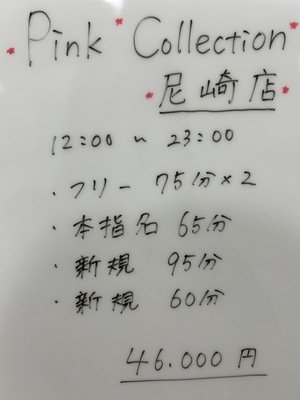 Pink Collection
尼崎店
12:00 ~ 23:00
・フリー 75分×2
・本指名 65分
・新規 95分
・新規 60分
46.000円